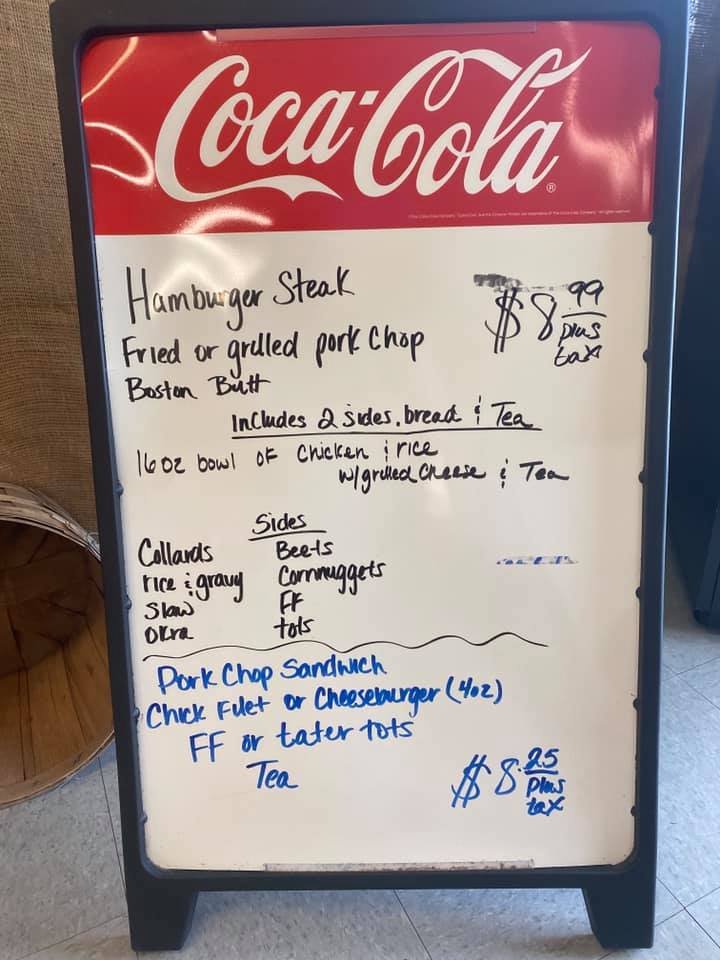 Coca-Cola®
Hamburger Steak
Fried or grilled pork Chop
Boston Butt
$8.99
plus
tax
Includes 2 sides, bread & Tea
16 oz bowl of Chicken & rice
w/grilled Cheese & Tea
Sides
Collards Beets
rice & gravy Cornnuggets
Slaw FF
Okra tots
Pork Chop Sandwich
Chick Filet or Cheeseburger (4oz)
FF or tater tots
Tea
$8.25
Plus
tax